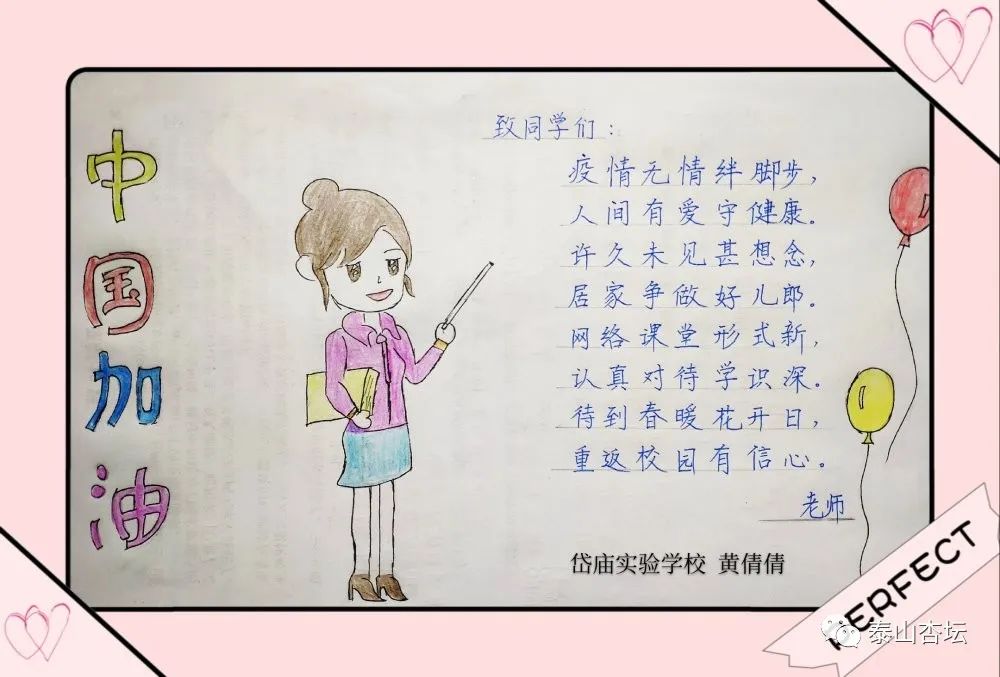 中国加油
致同学们：
疫情无情绊脚步，
人间有爱守健康。
许久未见甚想念，
居家争做好儿郎。
网络课堂形式新，
认真对待学识深。
待到春暖花开日，
重返校园有信心。
老师
岱庙实验学校 黄倩倩
PERFECT
泰山杏坛